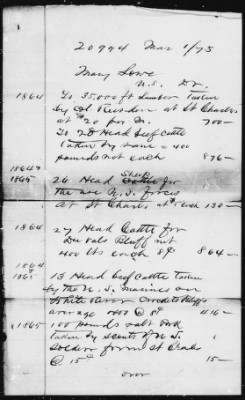 20994 Mar 1/75
Mary Lowe
U.S. Dr.
1864 To 35,000 ft Lumber Taken
by Col at St Charles
at $20 per M. 700—
To 28 Head Beef Cattle
Taken by same = 400
pounds net each 896—
1864 &
1865 26 Head Sheep for
the use U.S. forces
at St Charles at each 130—
1864 27 Head Cattle for
Duvals Bluff net
400 lbs each 8¢ 864—
1864
1865 13 Head Beef Cattle Taken
by the U.S. Marines on
White River
average 400 @ 8¢ 416—
1865 100 pounds salt Pork
taken by scouts of U.S.
soldiers from St Charles
@ 15¢ 15—
over